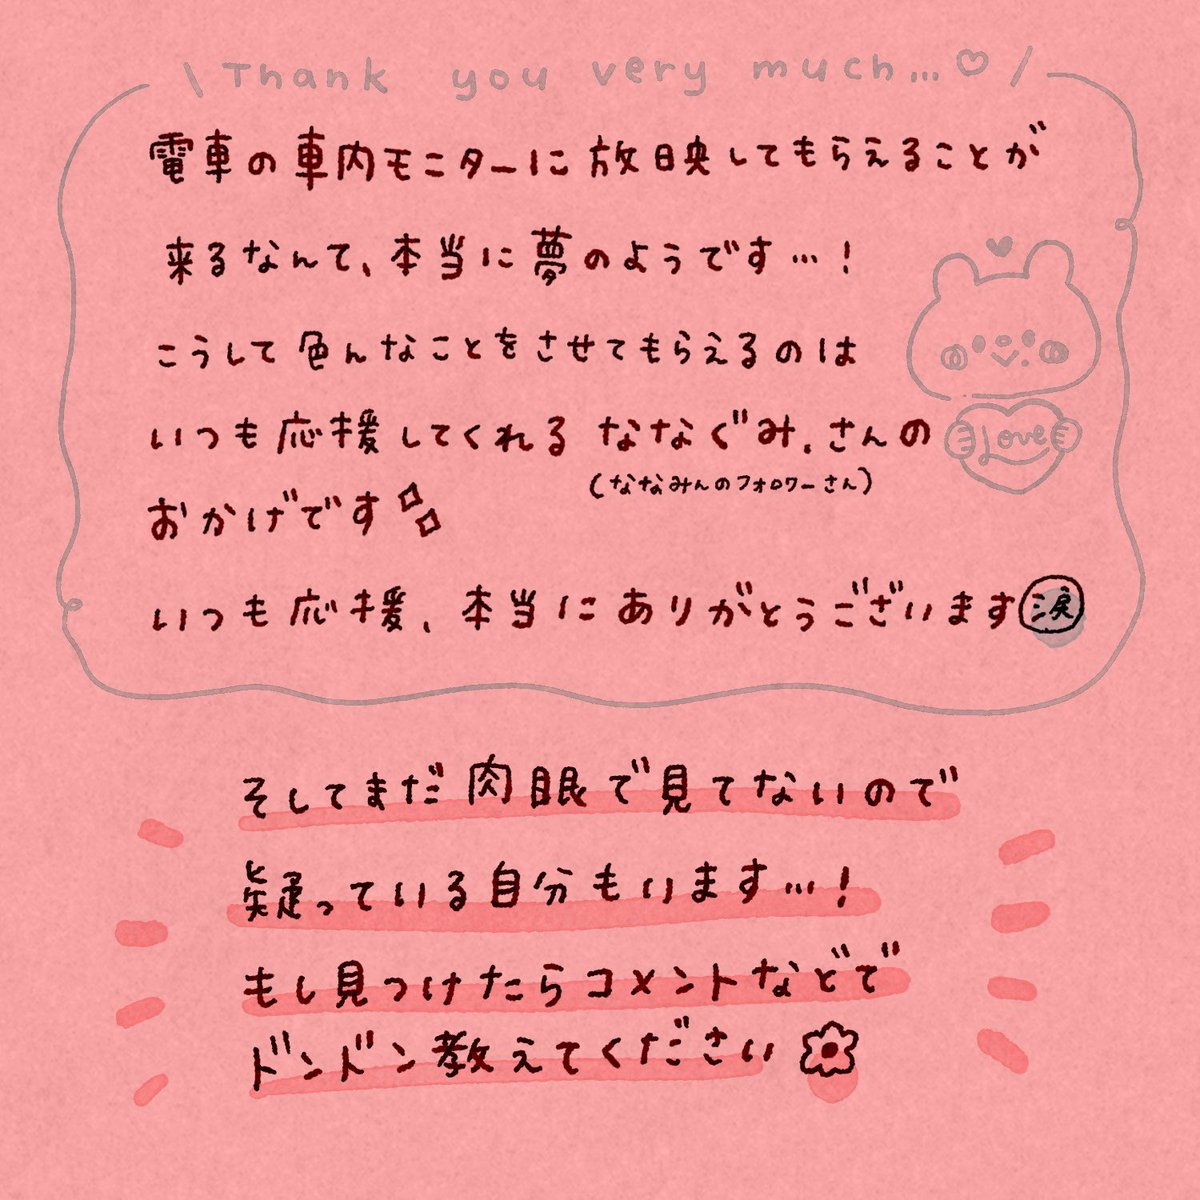 \ Thank you very much...♡ /
電車の車内モニターに放映してもらえることが
来るなんて、本当に夢のようです…!
こうして色んなことをさせてもらえるのは
いつも応援してくれる ななぐみ.さんの
(ななみんのフォロワーさん)
おかげです
Love
いつも応援、本当にありがとうございます涙
そしてまだ肉眼で見てないので
疑っている自分もいます…!
もし見つけたらコメントなどで
ドンドン教えてください